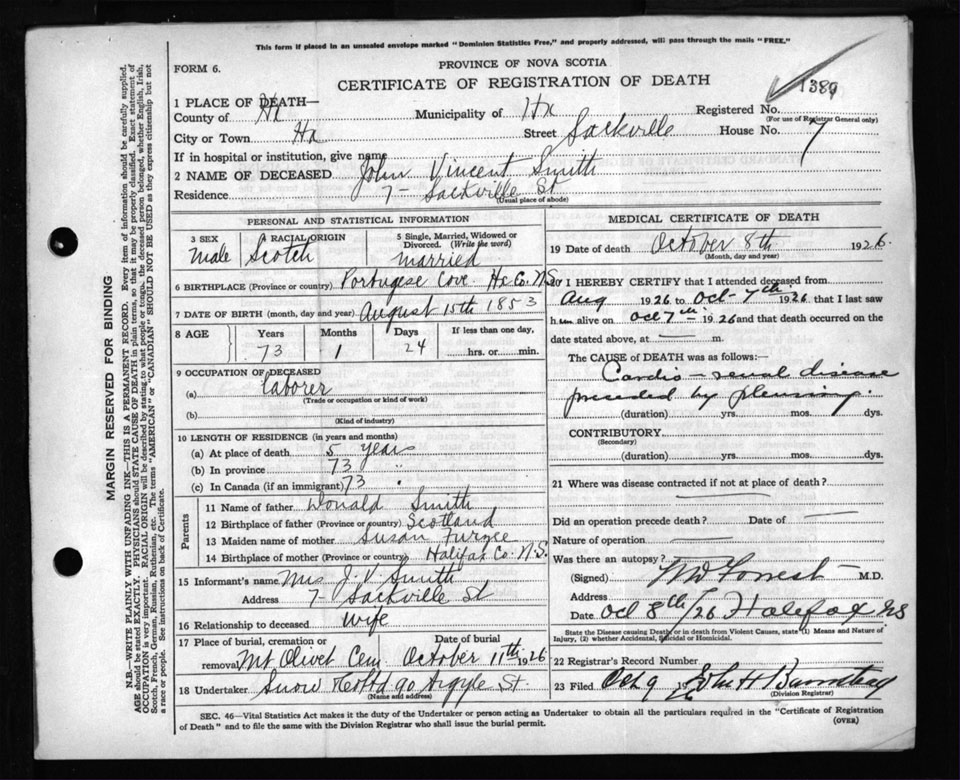 This form if placed in an unsealed envelope marked "Dominion Statistics Free," and properly addressed, will pass through the mails "FREE."
FORM 6.
PROVINCE OF NOVA SCOTIA
CERTIFICATE OF REGISTRATION OF DEATH
1389
1 PLACE OF DEATH—
County of Hx Municipality of Hx Registered No.
(For use of Registrar General only)
City or Town Hx Street Sackville House No. 7
If in hospital or institution, give name
2 NAME OF DECEASED John Vincent Smith
Residence 7 - Sackville St
(Usual place of abode)
PERSONAL AND STATISTICAL INFORMATION
3 SEX RACIAL ORIGIN 5 Single, Married, Widowed or Divorced. (Write the word)
male Scotch married
6 BIRTHPLACE (Province or country) Portugese Cove Hx Co. NS
7 DATE OF BIRTH (month, day and year) August 15th 1853
8 AGE Years Months Days If less than one day,
73 1 24 hrs. or min.
9 OCCUPATION OF DECEASED
(a) Laborer
(Trade or occupation or kind of work)
(b)
(Kind of industry)
10 LENGTH OF RESIDENCE (in years and months)
(a) At place of death 5 years
(b) In province 73 "
(c) In Canada (if an immigrant) 73 "
Parents
11 Name of father Donald Smith
12 Birthplace of father (Province or country) Scotland
13 Maiden name of mother Susan
14 Birthplace of mother (Province or country) Halifax Co. N.S.
15 Informant's name Mrs J. V. Smith
Address 7 - Sackville St
16 Relationship to deceased wife
17 Place of burial, cremation or removal Date of burial
Mt Olivet Cem. October 11th 1926
18 Undertaker Snow & Co Ltd 90 Argyle St.
(Name and address)
MEDICAL CERTIFICATE OF DEATH
19 Date of death October 8th 1926.
(Month, day and year)
20 I HEREBY CERTIFY that I attended deceased from
Aug 1926 to Oct - 7th 1926 that I last saw
him alive on Oct 7th 1926 and that death occurred on the
date stated above, at m.
The CAUSE OF DEATH was as follows:—
Cardio - renal disease
preceded by pleurisy.
(duration) yrs. mos. dys.
CONTRIBUTORY
(Secondary)
(duration) yrs. mos. dys.
21 Where was disease contracted if not at place of death?
Did an operation precede death? Date of
Nature of operation
Was there an autopsy?
(Signed) Forrest M.D.
Address
Date Oct 8th/26 Halifax NS
State the Disease causing Death, or in death from Violent Causes, state (1) Means and Nature of Injury, (2) whether Accidental, Suicidal or Homicidal.
22 Registrar's Record Number
23 Filed Oct 9 19 John H
(Division Registrar)
SEC. 46—Vital Statistics Act makes it the duty of the Undertaker or person acting as Undertaker to obtain all the particulars required in the "Certificate of Registration
of Death" and to file the same with the Division Registrar who shall issue the burial permit.
(OVER)
MARGIN RESERVED FOR BINDING
N.B.—WRITE PLAINLY WITH UNFADING INK—THIS IS A PERMANENT RECORD. Every item of information should be carefully supplied.
AGE should be stated EXACTLY. PHYSICIANS should STATE CAUSE OF DEATH in plain terms, so that it may be properly classified. Exact statement of
OCCUPATION is very important. RACIAL ORIGIN will be described by stating to what people or tongue, the deceased person belonged, whether English, Irish,
Scotch, French, German, Russian, Ruthenian, etc. The terms "AMERICAN" or "CANADIAN" SHOULD NOT BE USED as they express citizenship but not
a race or people. See instructions on back of Certificate.